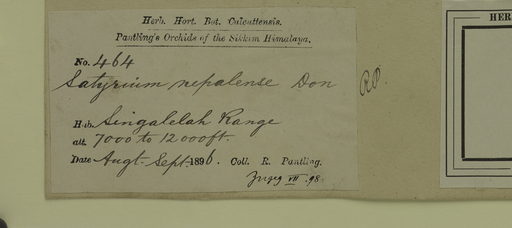 Herb. Hort. Bot. Calcuttensis.
Pantling's Orchids of the Sikkim Himalaya.
No. 464
Satyrium nepalense Don
Hab. Singalelah Range
alt. 7000 to 12000ft.
Date Augt-Sept. 1896. Coll. R. Pantling.
VII .98
HER